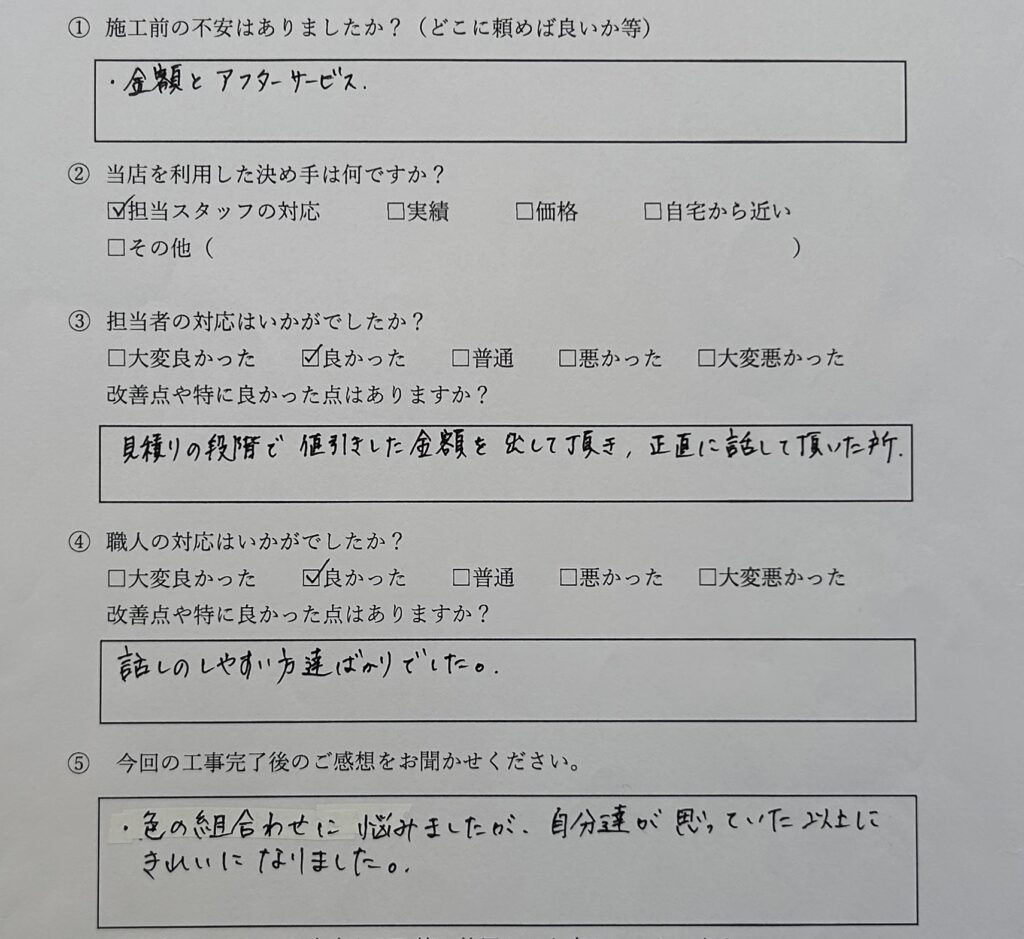 ① 施工前の不安はありましたか？（どこに頼めば良いか等）
・金額と アフターサービス.
② 当店を利用した決め手は何ですか？
☑担当スタッフの対応 □実績 □価格 □自宅から近い
□その他（ ）
③ 担当者の対応はいかがでしたか？
□大変良かった ☑良かった □普通 □悪かった □大変悪かった
改善点や特に良かった点はありますか？
見積りの段階で 値引きした金額を 出して頂き, 正直に話して頂いた所.
④ 職人の対応はいかがでしたか？
□大変良かった ☑良かった □普通 □悪かった □大変悪かった
改善点や特に良かった点はありますか？
話しのしやすい方達ばかりでした。.
⑤ 今回の工事完了後のご感想をお聞かせください。
・色の組合わせに 悩みましたが、自分達が 思っていた以上に
きれいに なりました。.